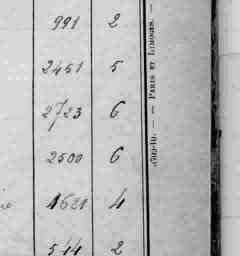 991 2
2451 5
2723 6
2500 6
1621 4
544 2
— PARIS ET LIMOGES. —